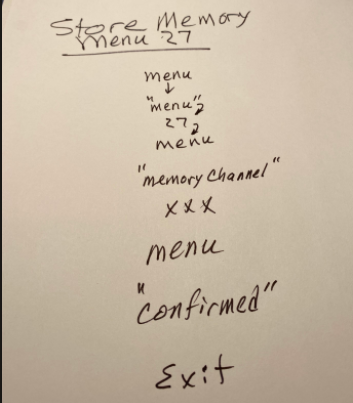 Store Memory
Menu 27
menu
↓
"menu",
27,
menu
"memory Channel"
xxx
menu
"confirmed"
Exit